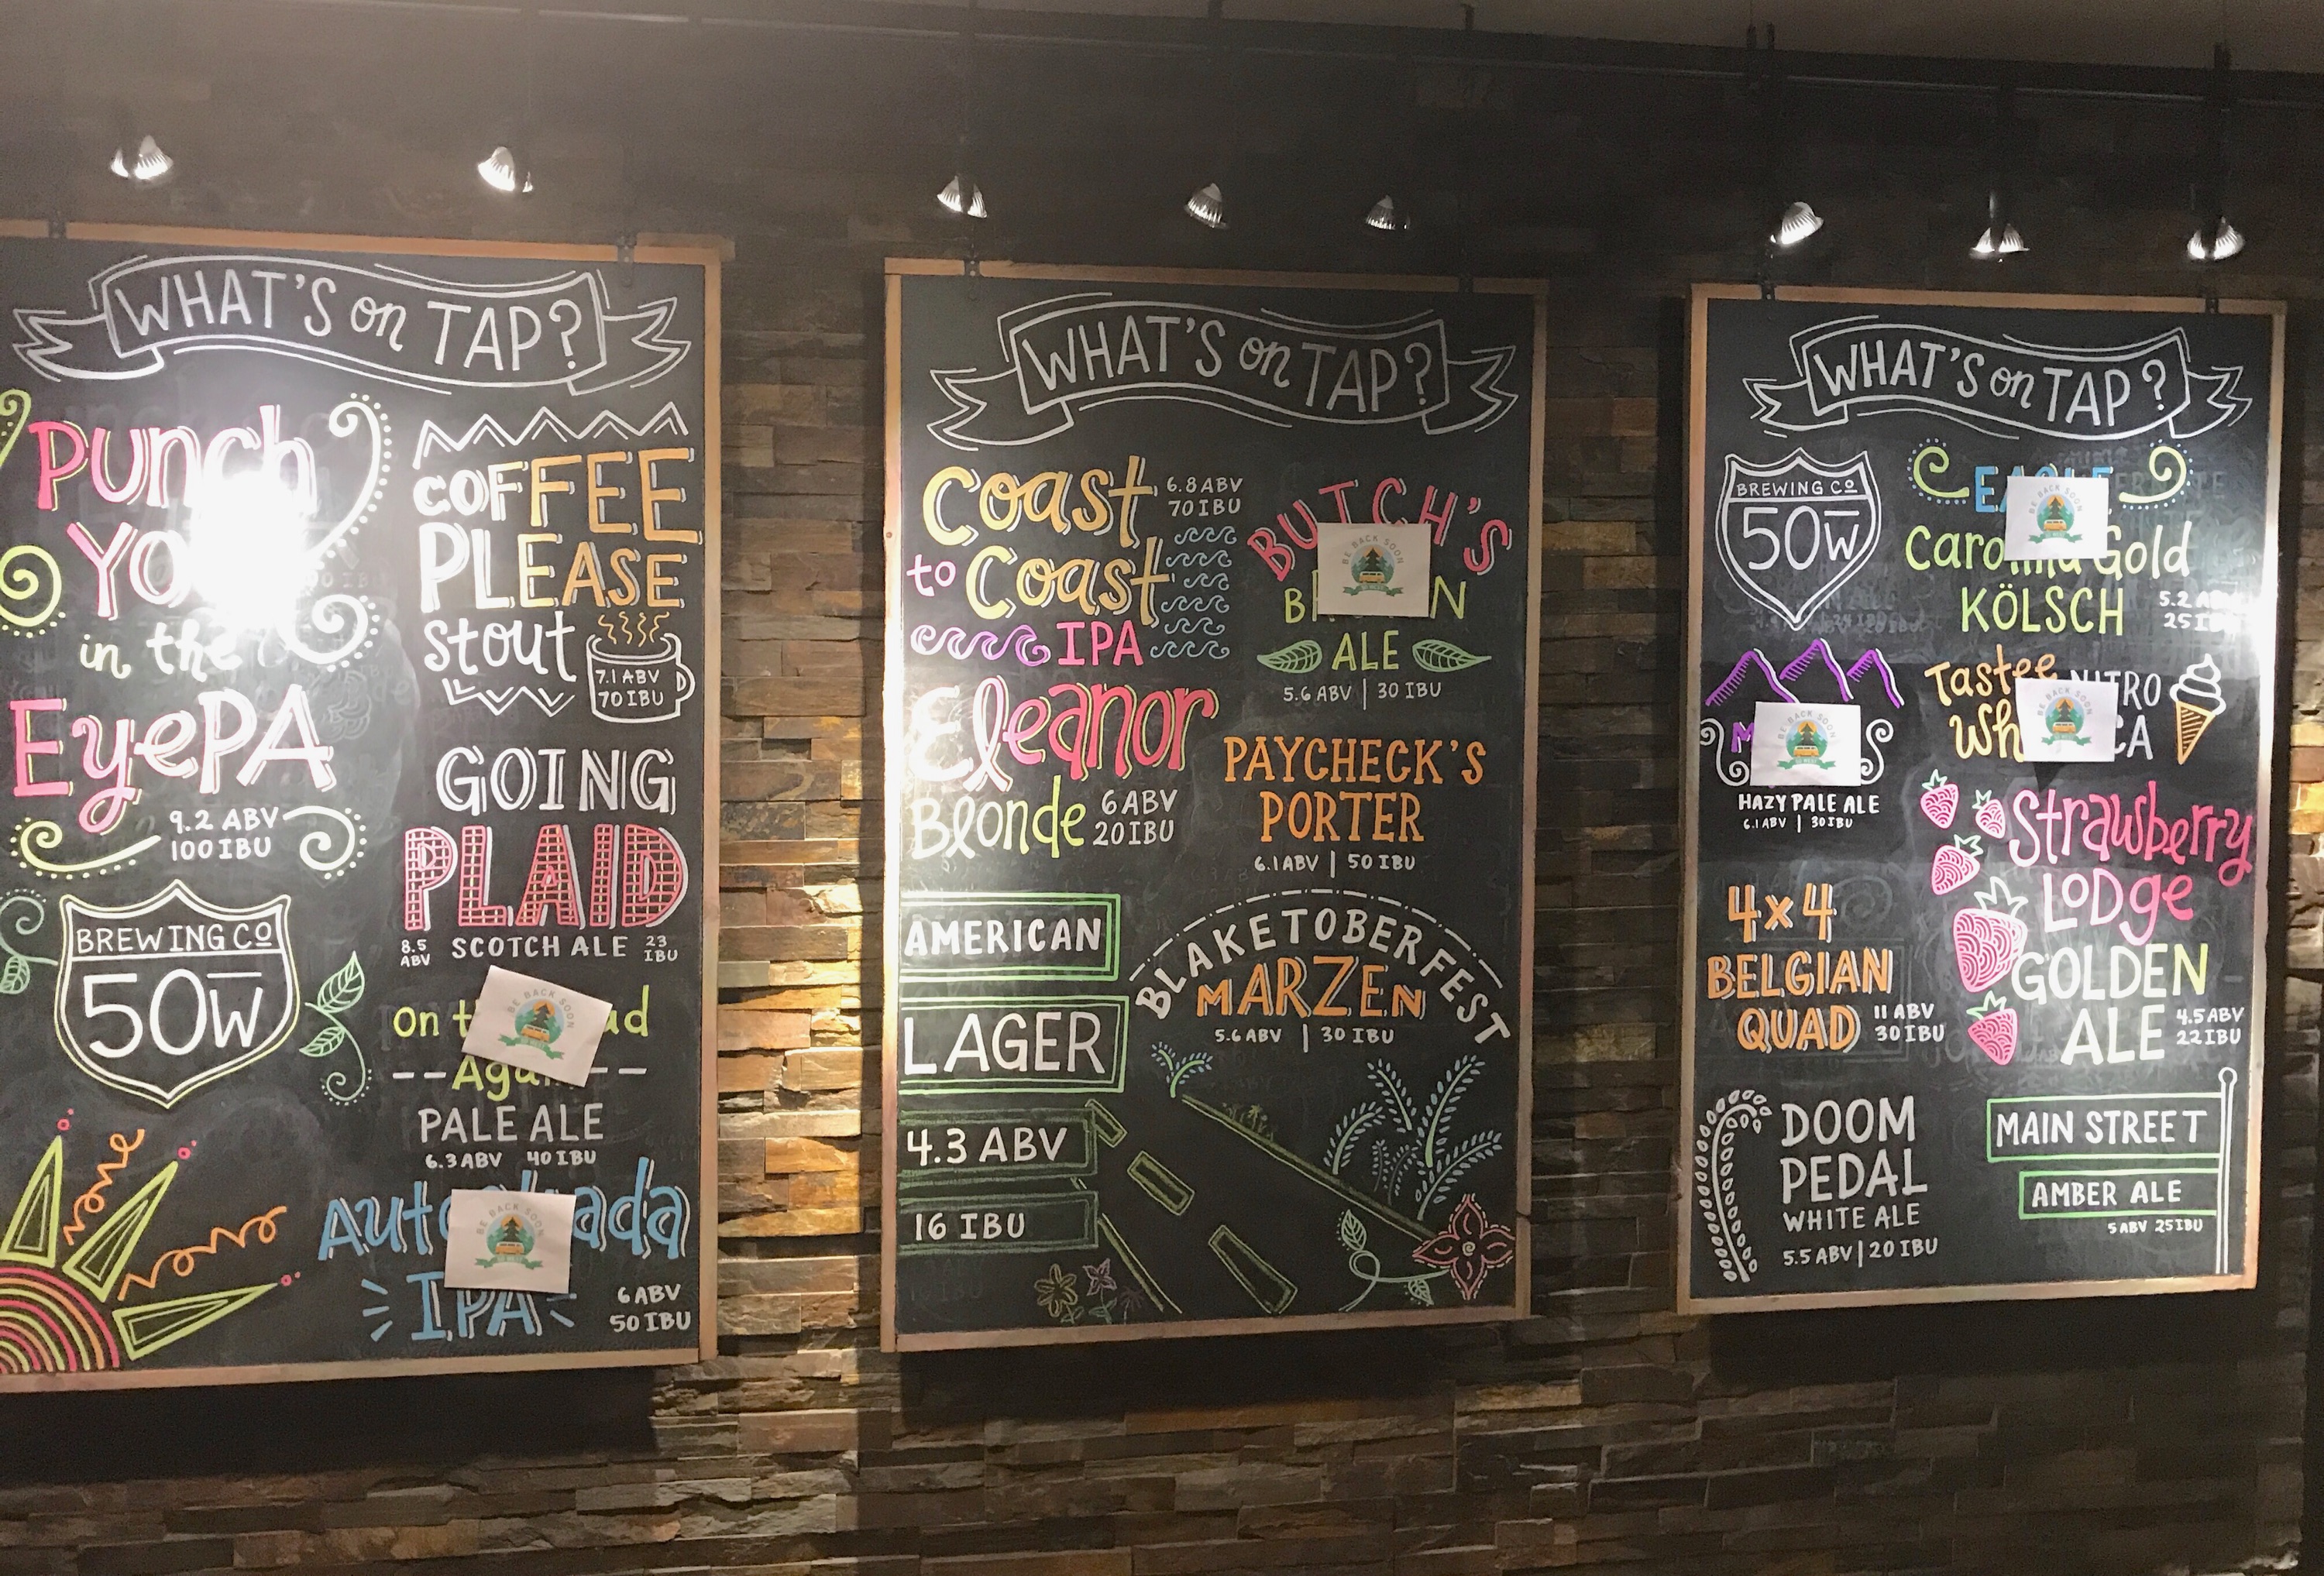 WHAT'S on TAP?
Punch
in the
EyePA
9.2 ABV
100 IBU
BREWING CO
50W
COFFEE
PLEASE
stout
7.1 ABV
70 IBU
GOING
PLAID
8.5 ABV SCOTCH ALE 23 IBU
BE BACK SOON
on
PALE ALE
6.3 ABV 40 IBU
BE BACK SOON
IPA
6 ABV
50 IBU
WHAT'S on TAP?
Coast
to Coast
IPA
6.8 ABV
70 IBU
Eleanor
Blonde
6 ABV
20 IBU
AMERICAN
LAGER
4.3 ABV
16 IBU
BUTCH'S
BE BACK SOON
ALE
5.6 ABV | 30 IBU
PAYCHECK'S
PORTER
6.1 ABV | 50 IBU
BLAKETOBERFEST
MARZEN
5.6 ABV | 30 IBU
WHAT'S on TAP?
BREWING CO
50W
BE BACK SOON
HAZY PALE ALE
6.1 ABV | 30 IBU
4x4
BELGIAN
QUAD
11 ABV
30 IBU
DOOM
PEDAL
WHITE ALE
5.5 ABV | 20 IBU
BE BACK SOON
Gold
KÖLSCH
5.2
25
Tastee NITRO
BE BACK SOON
Strawberry
LODge
GOLDEN
ALE
4.5 ABV
22 IBU
MAIN STREET
AMBER ALE
5 ABV 25 IBU